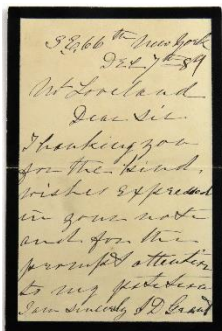 3 E. 66th New York
Dec 7th 89
Mr Loveland
Dear Sir
Thanking you
for the kind
wishes expressed
in your note
and for the
prompt attention
to my petition
I am sincerely J D Grant